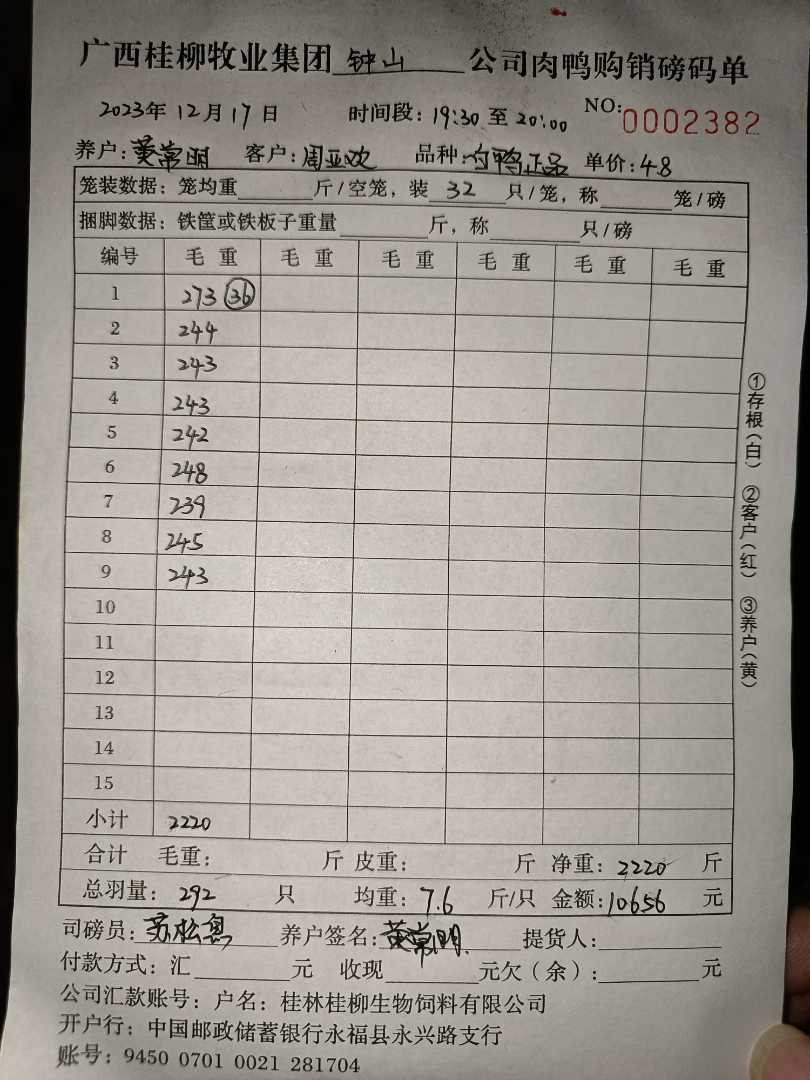 广西桂柳牧业集团 钟山 公司肉鸭购销磅码单
2023年12月17日 时间段：19:30至20:00 NO:0002382
养户：黄常明 客户：周亚欢 品种：白鸭正品 单价：4.8
笼装数据：笼均重____斤/空笼，装 32 只/笼，称____笼/磅
捆脚数据：铁筐或铁板子重量____斤，称____只/磅
编号 毛重 毛重 毛重 毛重 毛重 毛重
1 273 (36)
2 244
3 243
4 243
5 242
6 248
7 239
8 245
9 243
10
11
12
13
14
15
小计 2220
合计 毛重： 斤 皮重： 斤 净重：2220 斤
总羽量：292 只 均重：7.6 斤/只 金额：10656 元
司磅员：苏松 养户签名：黄常明 提货人：
付款方式：汇____元 收现____元欠（余）：____元
公司汇款账号：户名：桂林桂柳生物饲料有限公司
开户行：中国邮政储蓄银行永福县永兴路支行
账号：9450 0701 0021 281704
①存根（白） ②客户（红） ③养户（黄）